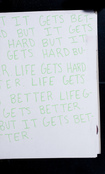 IT IT GETS BET
D BUT IT GETS
HARD BUT IT
GETS HARD BU
ER LIFE GETS HARD
TER LIFE GETS
BETTER LIFE G
GETS BETTER
BUT IT GETS BET
TTER